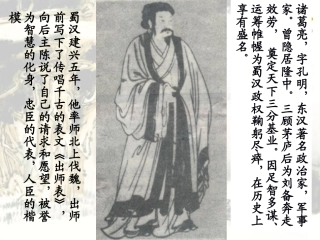 诸葛亮，字孔明，东汉著名政治家，军事
家。曾隐居隆中。三顾茅庐后为刘备奔走
效劳，奠定天下三分基业。因足智多谋、
运筹帷幄为蜀汉政权鞠躬尽瘁，在历史上
享有盛名。
蜀汉建兴五年，他率师北上伐魏，出师
前写下了传唱千古的表文《出师表》，
向后主陈说了自己的请求和愿望，被誉
为智慧的化身，忠臣的代表，人臣的楷
模